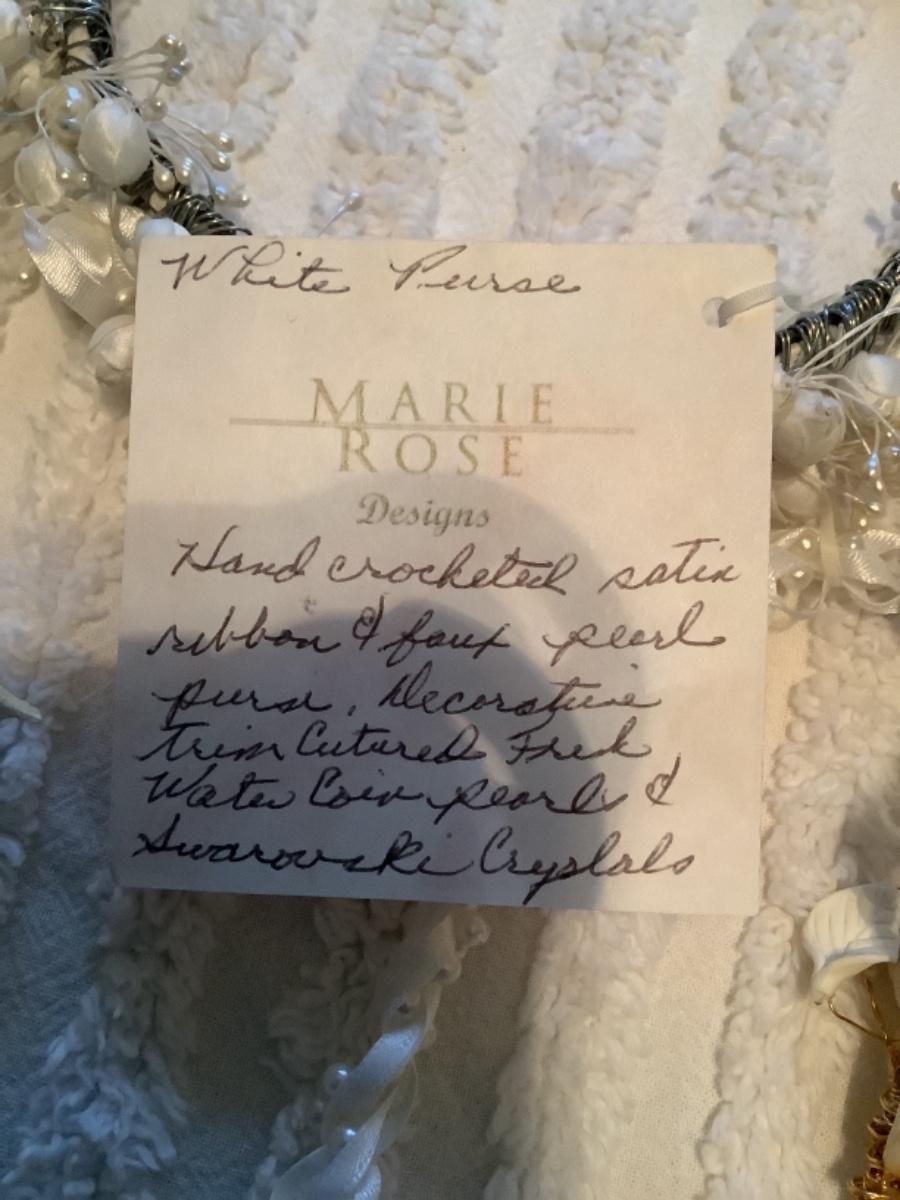 White Purse
MARIE
ROSE
Designs
Hand crocheted satin
ribbon & faux pearl
purse, Decorative
trim Cutured Fresh
Water Coin pearls &
Swarovski Crystals